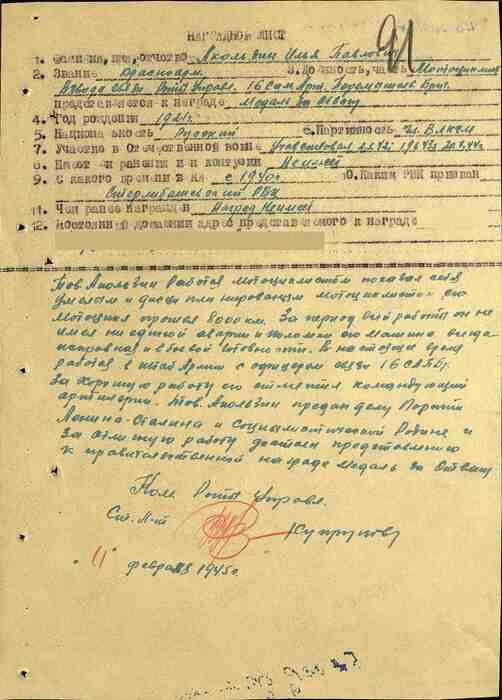 91
НАГРАДНОЙ ЛИСТ
1. Фамилия, имя, отчество Якользин Илья Павлович
2. Звание Красноарм. 3. Должность, часть Мотоциклист
Взвода связи Роты Управл. 16 Сам. Арт.
представляется к награде Медаль За Отвагу
4. Год рождения 1921г.
5. Национальность Русский 6. Партийность чл. ВЛКСМ
7. Участие в Отечественной войне Участвовал
8. Имеет ли ранения и контузии Неимеет
9. С какого времени в КА с 1940г. 10. Каким РВК призван
Стерлибашевский РВК
11. Чем ранее награжден Наград Неимеет
12. Постоянный домашний адрес представляемого к награде
Тов. Якользин Работая мотоциклистом показал себя
умелым и дисциплинированным мотоциклистом его
Мотоцикл прошел 8000 км. За период своей работы он не
имел ни одной аварии и поломки его машина всегда
исправна и в боевой готовности. В настоящее время
работая в штаб Армии с офицером связи 16 САПБр.
За хорошую работу его отметил командующий
артилерии. Тов. Якользин предан делу Партии
Ленина-Сталина и Социалистической Родине и
За отличную работу достоин представлению
к правительственной награде медаль За Отвагу
Ком. Роты Управл.
Ст. Л-т Купрунов
"11" февраля 1945г.